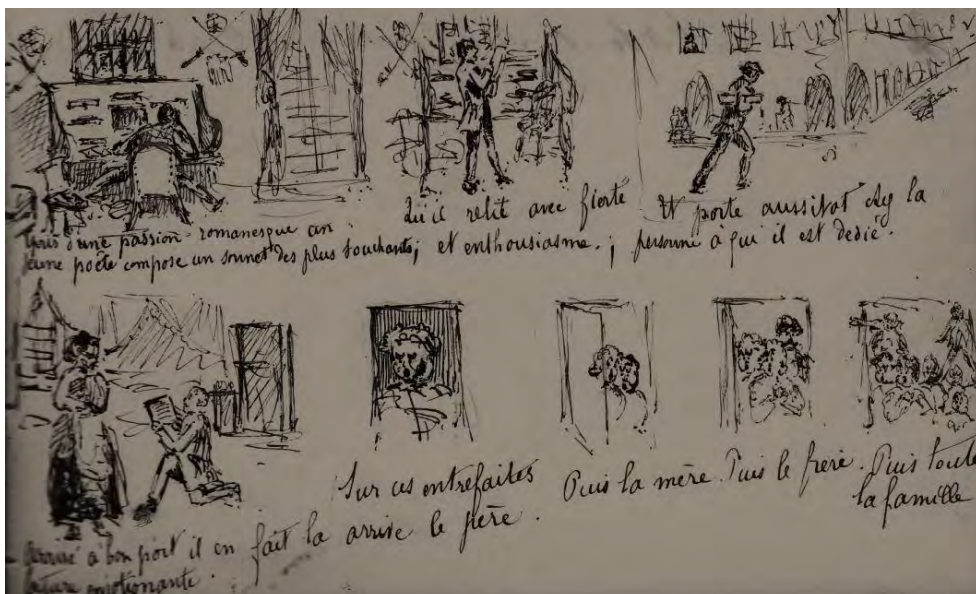 Epris d'une passion romanesque un
jeune poête compose un sonnet des plus touchants;
Qu'il relit avec fierté
et enthousiasme. ;
Et porte aussitot chez la
personne à qui il est dedié.
Arrivé à bon port il en fait la
lecture emotionante.
Sur ces entrefaites
arrive le père.
Puis la mère.
Puis le frère.
Puis toute
la famille